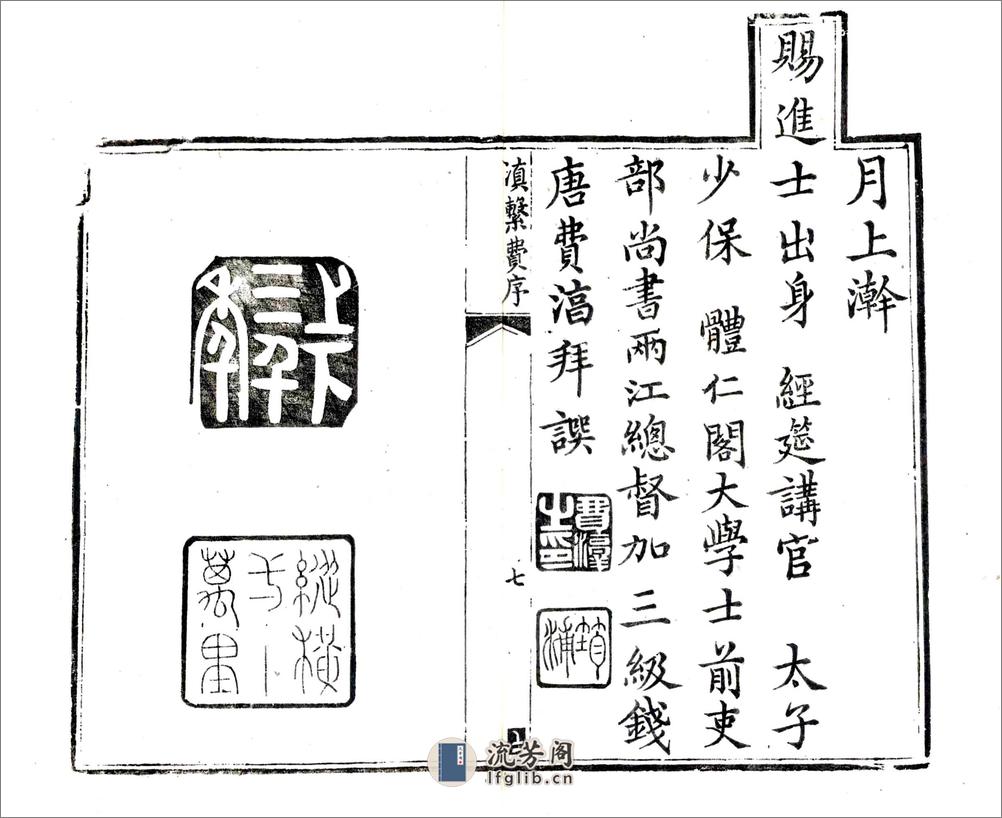 月上澣
賜進士出身　經筵講官　太子
少保　體仁閣大學士前吏
部尚書兩江總督加三級錢
唐費淳拜譔
費淳
之印
筠
浦
滇繫費序
七
上下
三千
年
縱橫
萬里
流芳阁
lfglib.cn